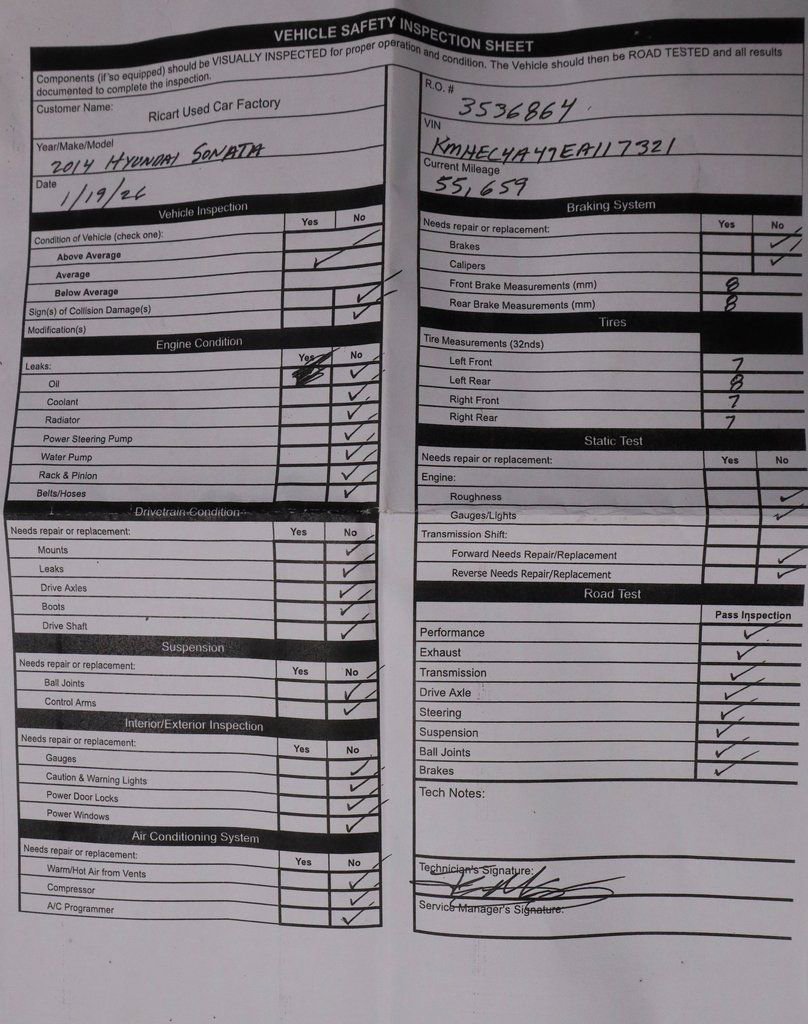 VEHICLE SAFETY INSPECTION SHEET
Components (if so equipped) should be VISUALLY INSPECTED for proper operation and condition. The Vehicle should then be ROAD TESTED and all results
documented to complete the inspection.
Customer Name: Ricart Used Car Factory
Year/Make/Model
2014 HYUNDAI SONATA
Date
1/19/26
Vehicle Inspection
Yes No
Condition of Vehicle (check one):
Above Average
Average
Below Average
Sign(s) of Collision Damage(s)
Modification(s)
Engine Condition
Yes No
Leaks:
Oil
Coolant
Radiator
Power Steering Pump
Water Pump
Rack & Pinion
Belts/Hoses
Drivetrain Condition
Needs repair or replacement: Yes No
Mounts
Leaks
Drive Axles
Boots
Drive Shaft
Suspension
Needs repair or replacement: Yes No
Ball Joints
Control Arms
Interior/Exterior Inspection
Needs repair or replacement: Yes No
Gauges
Caution & Warning Lights
Power Door Locks
Power Windows
Air Conditioning System
Needs repair or replacement: Yes No
Warm/Hot Air from Vents
Compressor
A/C Programmer
R.O. #
3536864
VIN
KMHEC4A47EA117321
Current Mileage
55,659
Braking System
Needs repair or replacement: Yes No
Brakes
Calipers
Front Brake Measurements (mm) 8
Rear Brake Measurements (mm) 8
Tires
Tire Measurements (32nds)
Left Front 7
Left Rear 8
Right Front 7
Right Rear 7
Static Test
Needs repair or replacement: Yes No
Engine:
Roughness
Gauges/Lights
Transmission Shift:
Forward Needs Repair/Replacement
Reverse Needs Repair/Replacement
Road Test
Pass Inspection
Performance
Exhaust
Transmission
Drive Axle
Steering
Suspension
Ball Joints
Brakes
Tech Notes:
Technician's Signature:
Service Manager's Signature: